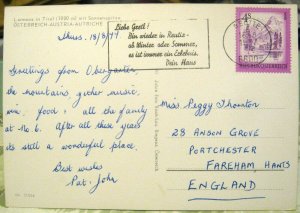 Lermoos in Tirol (1000 m) ein Sonnenparadies
ÖSTERREICH-AUSTRIA-AUTRICHE
Thurs. 18/8/77.
Greetings from Obergarten
the mountains, zither music,
wine, food! all the family
at No 6. After all these years
its still a wonderful place.
Best wishes
Pat. John
Liebe Gretl!
Bin wieder in Reutte -
ob Winter oder Sommer,
es ist immer ein Erlebnis.
Dein Hans
REPUBLIK ÖSTERREICH
Miss Peggy Thornton
28 ANSON GROVE
PORTCHESTER
FAREHAM HANTS
ENGLAND